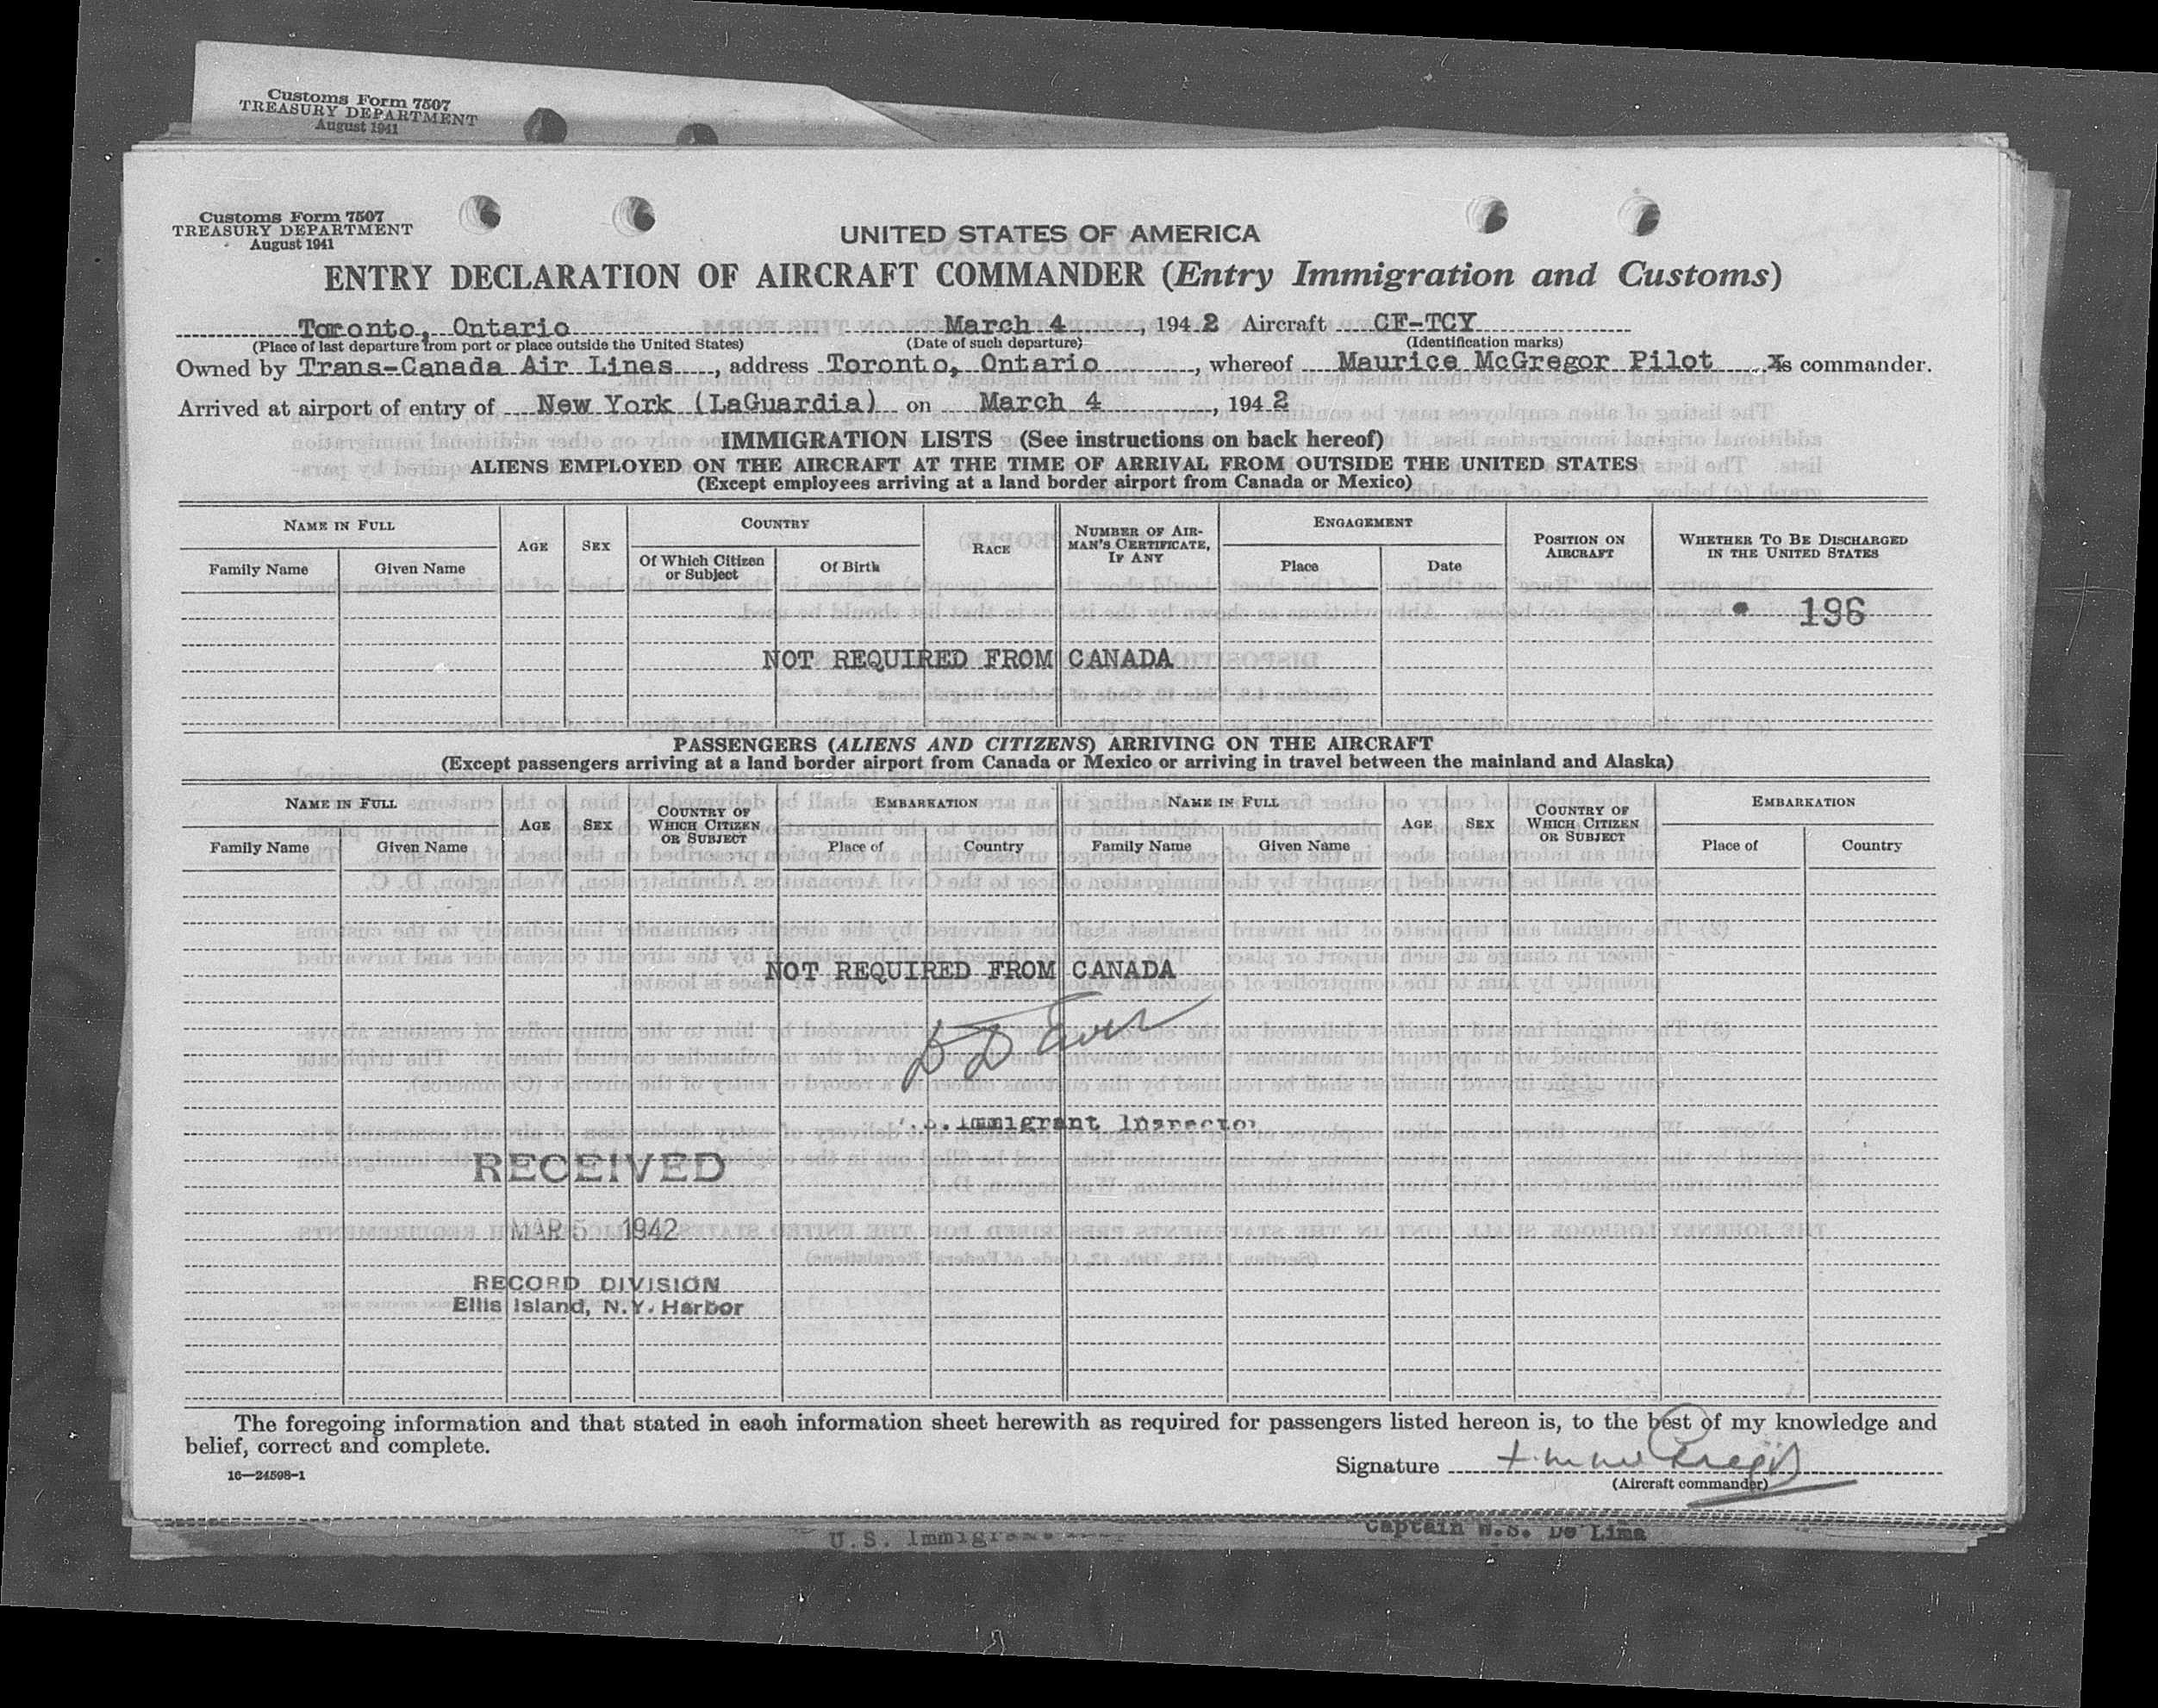 Customs Form 7507
TREASURY DEPARTMENT
August 1941
Customs Form 7507
TREASURY DEPARTMENT
August 1941
UNITED STATES OF AMERICA
ENTRY DECLARATION OF AIRCRAFT COMMANDER (Entry Immigration and Customs)
Toronto, Ontario March 4, 1942 Aircraft CF-TCY
(Place of last departure from port or place outside the United States) (Date of such departure) (Identification marks)
Owned by Trans-Canada Air Lines, address Toronto, Ontario, whereof Maurice McGregor Pilot is commander.
Arrived at airport of entry of New York (LaGuardia) on March 4, 1942
IMMIGRATION LISTS (See instructions on back hereof)
ALIENS EMPLOYED ON THE AIRCRAFT AT THE TIME OF ARRIVAL FROM OUTSIDE THE UNITED STATES
(Except employees arriving at a land border airport from Canada or Mexico)
NAME IN FULL AGE SEX COUNTRY RACE NUMBER OF AIRMAN'S CERTIFICATE, IF ANY ENGAGEMENT POSITION ON AIRCRAFT WHETHER TO BE DISCHARGED IN THE UNITED STATES
Family Name Given Name Of Which Citizen or Subject Of Birth Place Date
196
NOT REQUIRED FROM CANADA
PASSENGERS (ALIENS AND CITIZENS) ARRIVING ON THE AIRCRAFT
(Except passengers arriving at a land border airport from Canada or Mexico or arriving in travel between the mainland and Alaska)
NAME IN FULL AGE SEX COUNTRY OF WHICH CITIZEN OR SUBJECT EMBARKATION NAME IN FULL AGE SEX COUNTRY OF WHICH CITIZEN OR SUBJECT EMBARKATION
Family Name Given Name Place of Country Family Name Given Name Place of Country
NOT REQUIRED FROM CANADA
.S. Immigrant Inspector
RECEIVED
MAR 5 1942
RECORD DIVISION
Ellis Island, N.Y. Harbor
The foregoing information and that stated in each information sheet herewith as required for passengers listed hereon is, to the best of my knowledge and
belief, correct and complete.
16—24598-1
Signature
(Aircraft commander)
U.S. Immigrant
Captain W.S. De Lima